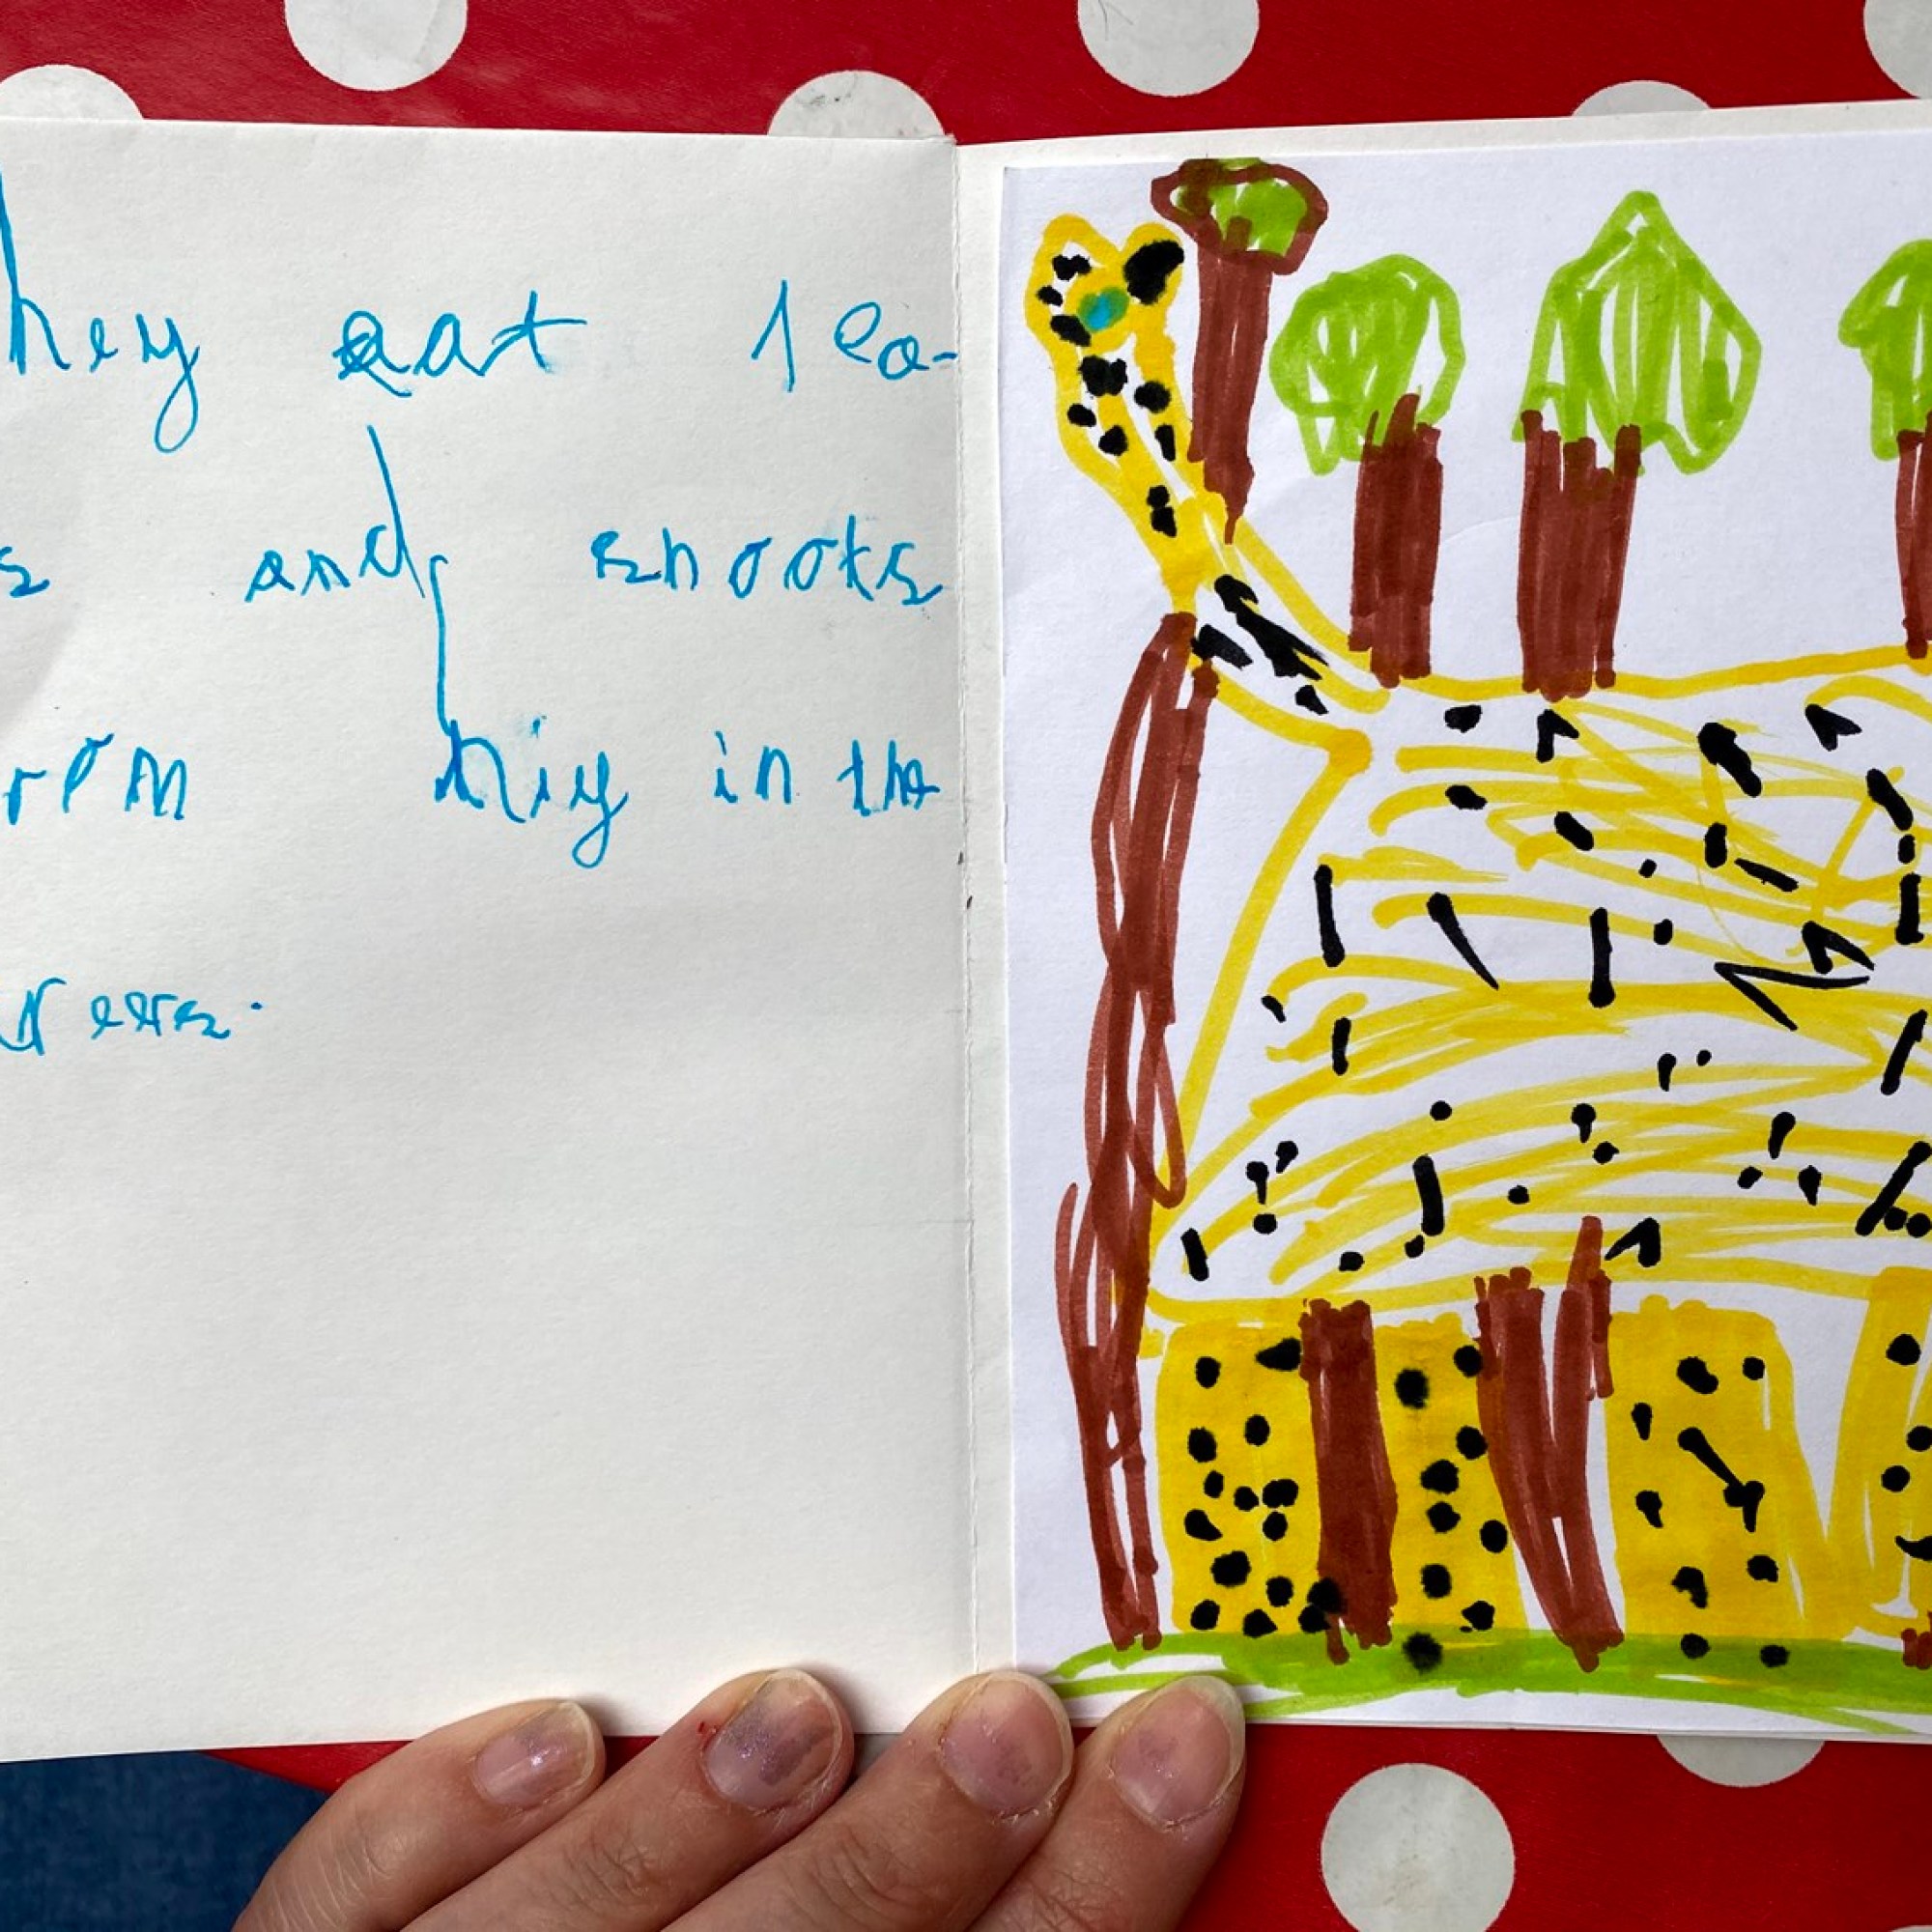 hey eat lea-
s and shoots
rom hiy in the
rees.